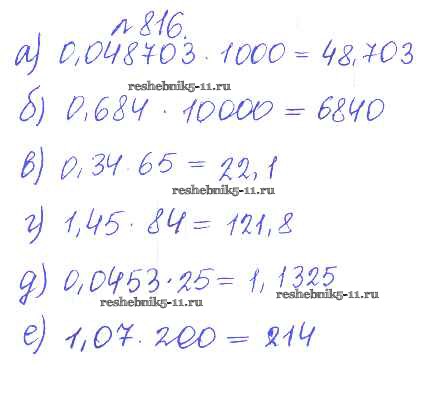 № 816.
а) 0,048703 · 1000 = 48,703
reshebnik5-11.ru
б) 0,684 · 10000 = 6840
в) 0,34 · 65 = 22,1
reshebnik5-11.ru
г) 1,45 · 84 = 121,8
д) 0,0453 · 25 = 1,1325
reshebnik5-11.ru
reshebnik5-11.ru
е) 1,07 · 200 = 214